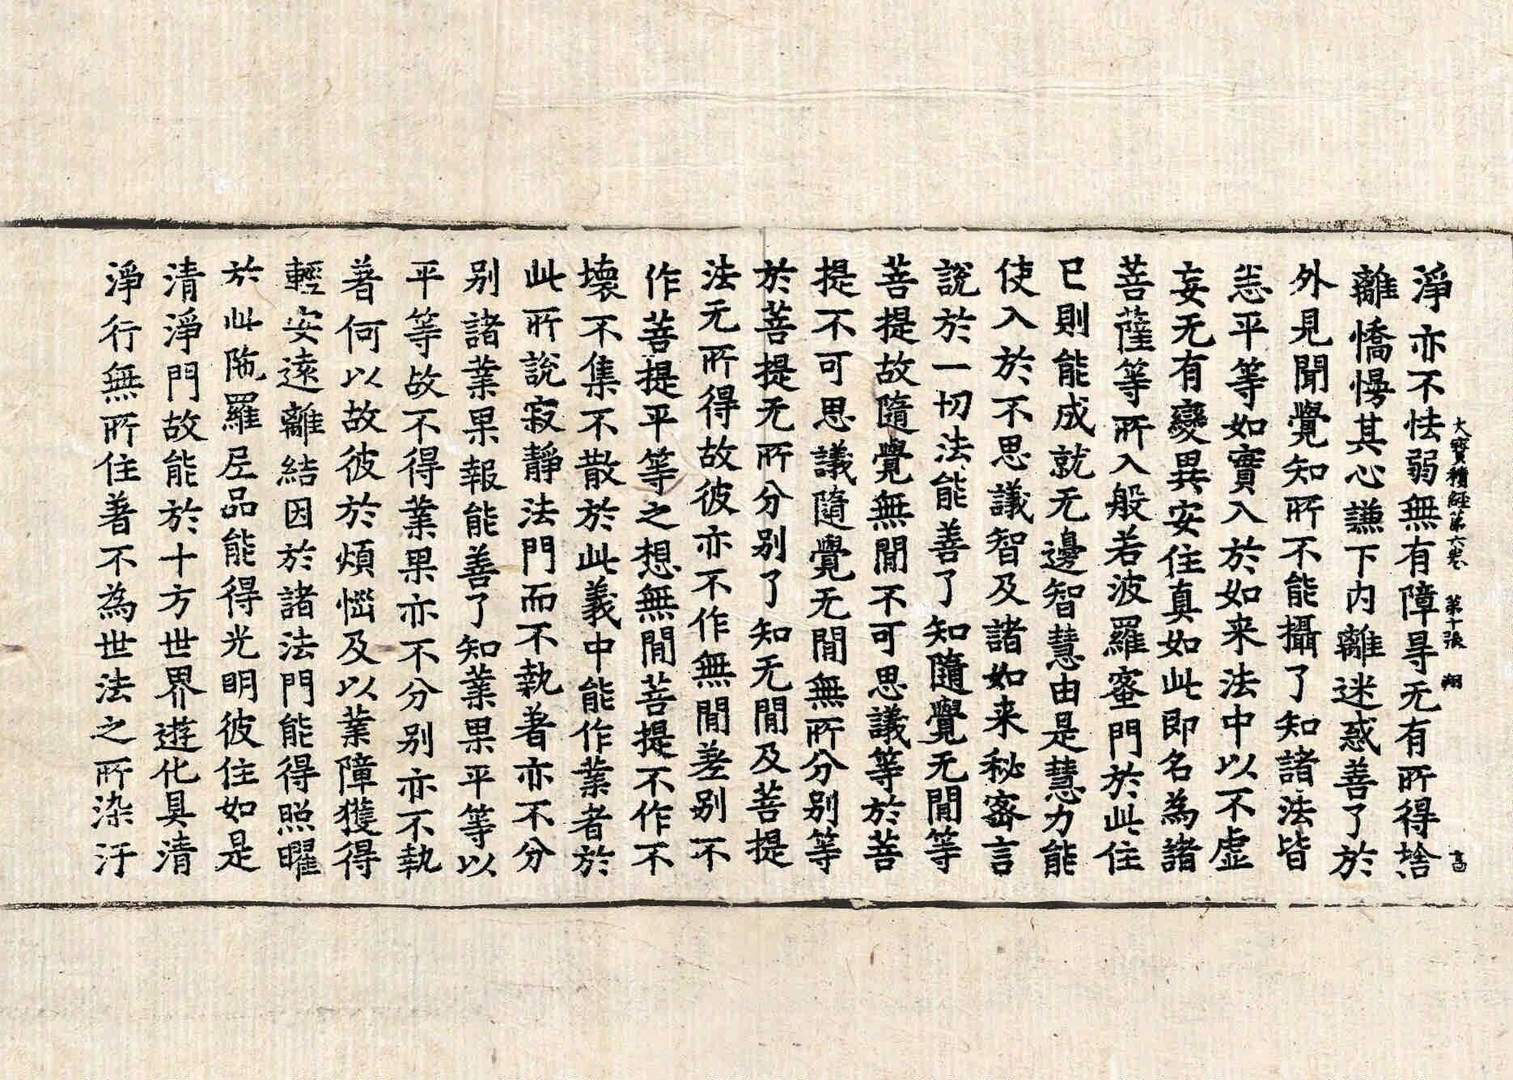 大寶積經第六卷　第十張　翔　高
淨亦不怯弱無有障㝵无有所得捨
離憍慢其心謙下内離迷惑善了於
外見聞覺知所不能攝了知諸法皆
悉平等如實入於如来法中以不虚
妄无有變異安住真如此即名為諸
菩薩等所入般若波羅蜜門於此住
已則能成就无邊智慧由是慧力能
使入於不思議智及諸如来秘密言
說於一切法能善了知隨覺无閒等
菩提故隨覺無閒不可思議等於菩
提不可思議隨覺无閒無所分别等
於菩提无所分别了知无閒及菩提
法无所得故彼亦不作無閒差别不
作菩提平等之想無閒菩提不作不
壊不集不散於此義中能作業者於
此所說寂靜法門而不執著亦不分
别諸業果報能善了知業果平等以
平等故不得業果亦不分别亦不執
著何以故彼於煩惱及以業障獲得
輕安遠離結因於諸法門能得照曜
於此陁羅尼品能得光明彼住如是
清淨門故能於十方世界遊化具清
淨行無所住著不為世法之所染汙